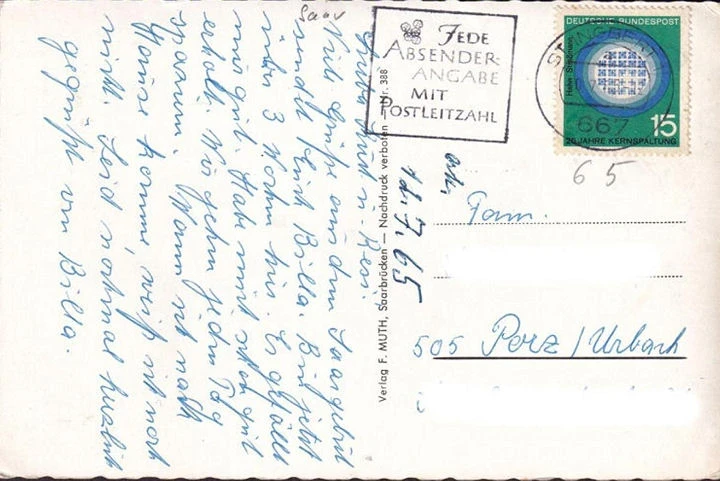 Saar
Liebe Kurt u. Resi!
Viele Grüße aus dem Saargebiet
sendet Euch Billa. Bin jetzt
über 3 Wochen hier. Es gefällt
mir gut. Habe mich schon gut
erholt. Wir gehen jeden Tag
spazieren. Wann ich nach
Hause komme, weiß ich noch
nicht. Seid nochmal herzlich
gegrüßt von Billa.
Verlag F. MUTH, Saarbrücken — Nachdruck verboten Nr. 388
JEDE
ABSENDER-
ANGABE
MIT
POSTLEITZAHL
ST. INGBERT
667
DEUTSCHE BUNDESPOST
Hahn Straßmann
15
25 JAHRE KERNSPALTUNG
65
14.7.65
Fam.
505 Porz/Urbach